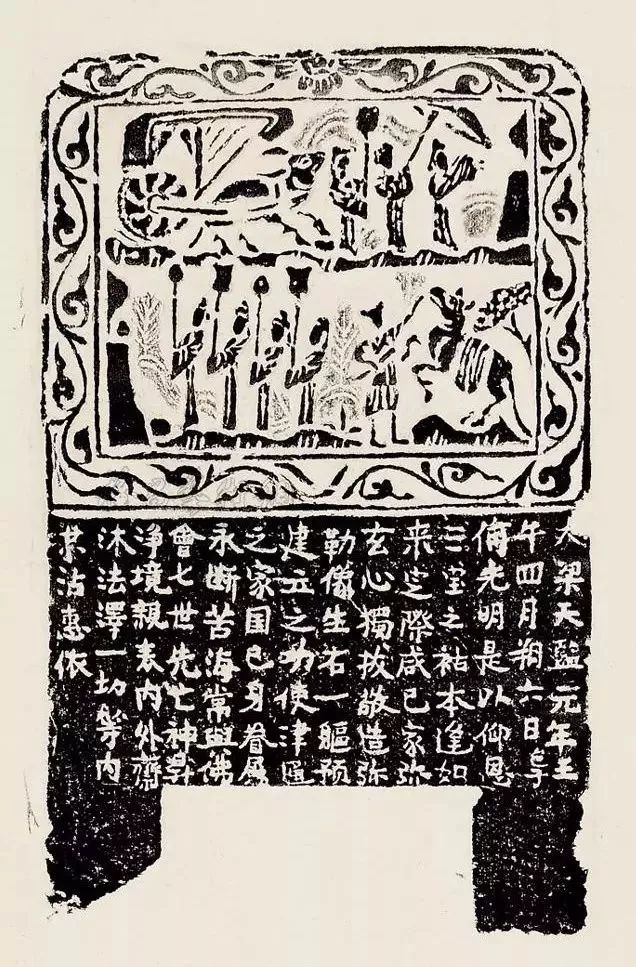 大梁天監元年壬
午四月朔六日
光明是以仰恩
三之祜本逢如
来之際咸已家弥
玄心獨拔敬造弥
勒像生右一軀預
建立之功使津通
之家国已身眷属
永断苦海常與佛
會七世先亡神昇
淨境親表内外齋
沐法澤一切等内
其沾惠依